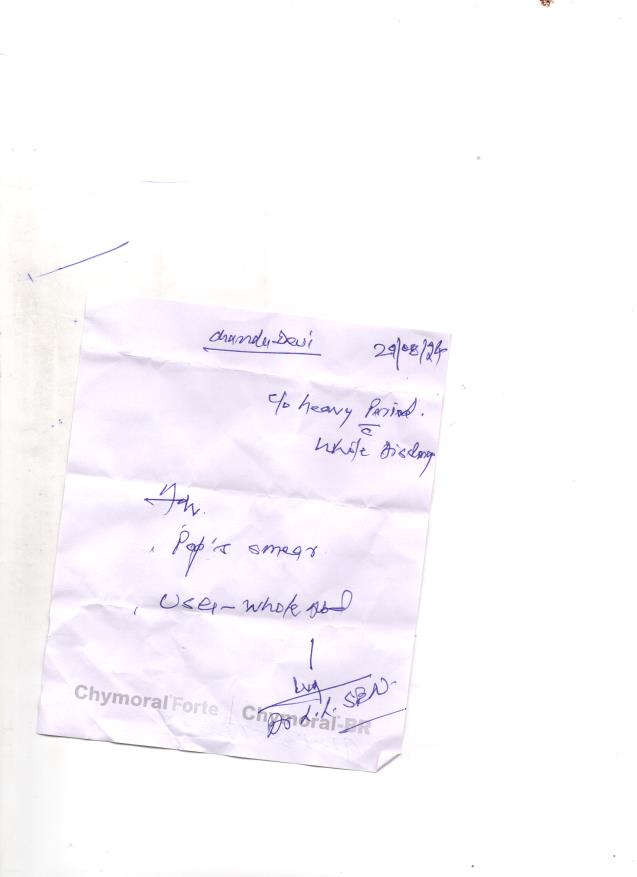 Chanda Devi 29/08/24
c/o heavy Period.
c̅
White Discharg
Adv.
. Pap's smear
, USG - whole Abd
Dr L.L. SEN
Chymoral Forte | Chymoral-BR